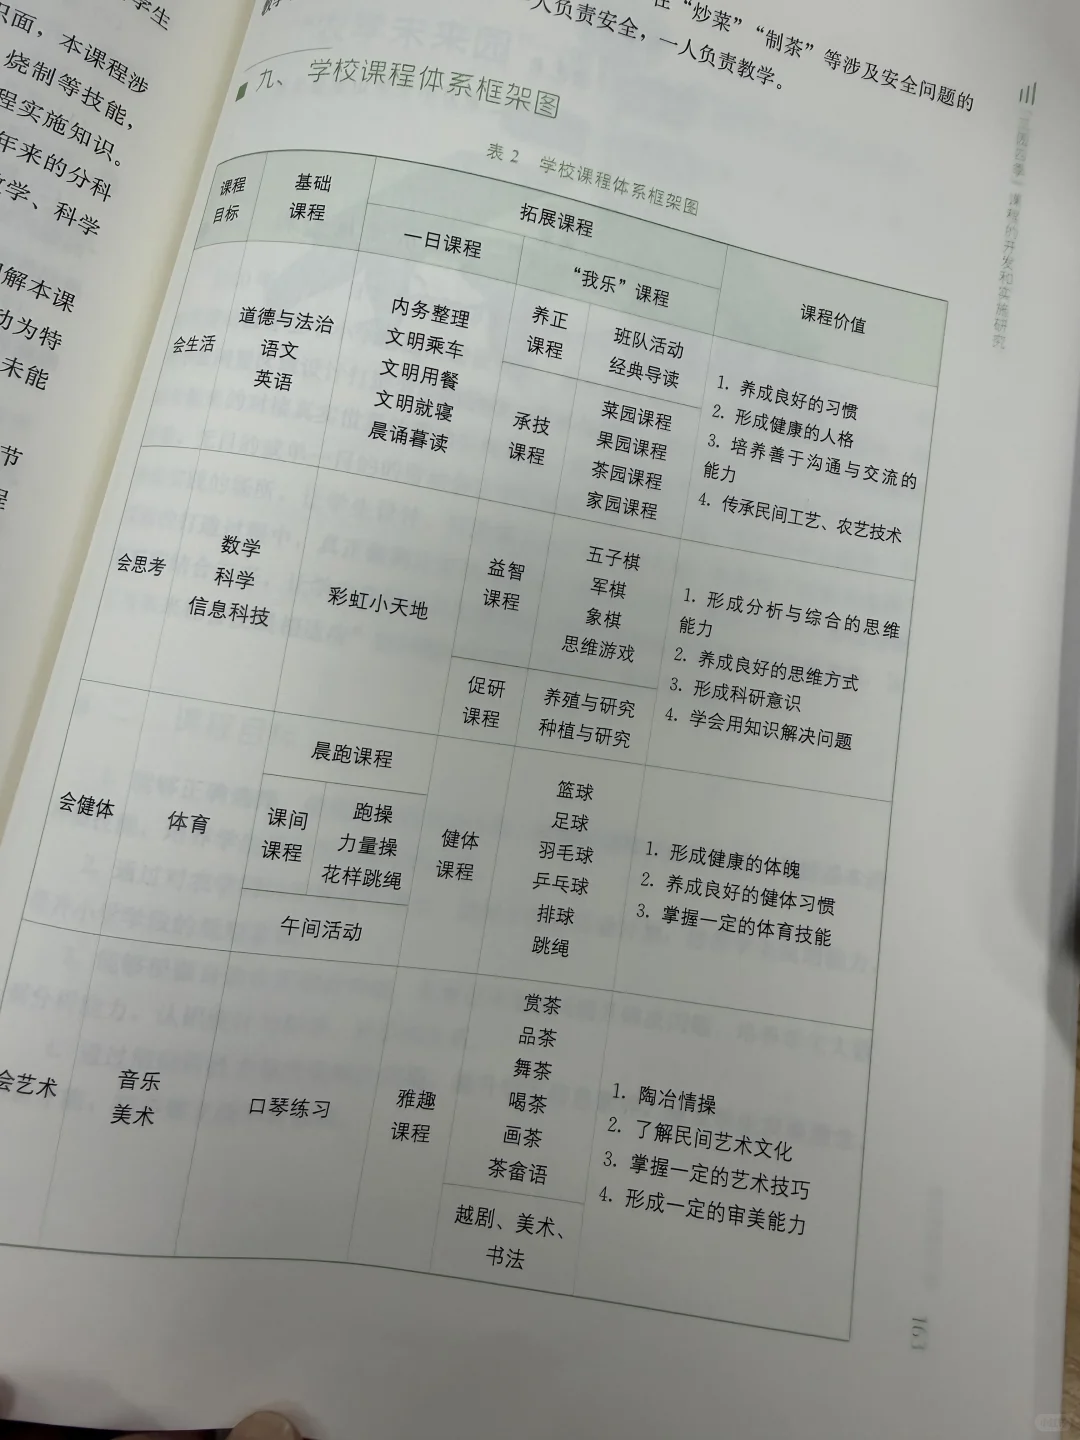 学生
识面，本课程涉
烧制等技能，
程实施知识。
年来的分科
学、科学
解本课
动为特
未能
节
在“炒菜”“制茶”等涉及安全问题的
人负责安全，一人负责教学。
九、学校课程体系框架图
表 2 学校课程体系框架图
课程
目标
基础
课程
拓展课程
一日课程
“我乐”课程
课程价值
会生活
道德与法治
语文
英语
内务整理
文明乘车
文明用餐
文明就寝
晨诵暮读
养正
课程
班队活动
经典导读
承技
课程
菜园课程
果园课程
茶园课程
家园课程
1. 养成良好的习惯
2. 形成健康的人格
3. 培养善于沟通与交流的
能力
4. 传承民间工艺、农艺技术
会思考
数学
科学
信息科技
彩虹小天地
益智
课程
五子棋
军棋
象棋
思维游戏
促研
课程
养殖与研究
种植与研究
1. 形成分析与综合的思维
能力
2. 养成良好的思维方式
3. 形成科研意识
4. 学会用知识解决问题
会健体
体育
晨跑课程
课间
课程
跑操
力量操
花样跳绳
午间活动
健体
课程
篮球
足球
羽毛球
乒乓球
排球
跳绳
1. 形成健康的体魄
2. 养成良好的健体习惯
3. 掌握一定的体育技能
会艺术
音乐
美术
口琴练习
雅趣
课程
赏茶
品茶
舞茶
喝茶
画茶
茶畲语
越剧、美术、
书法
1. 陶冶情操
2. 了解民间艺术文化
3. 掌握一定的艺术技巧
4. 形成一定的审美能力
课程的开发和实施研究
163